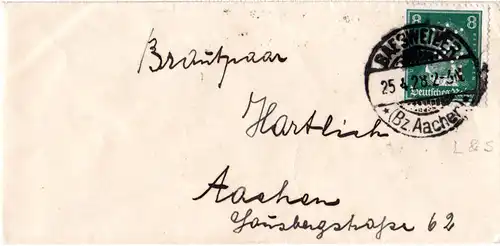 8 8
BAESWEILER
25.4.28.2-3N
Deutsches Reich
*(Bz. Aachen)*
Brautpaar
Hartlich
L & S
Aachen
Lousbergstraße 62